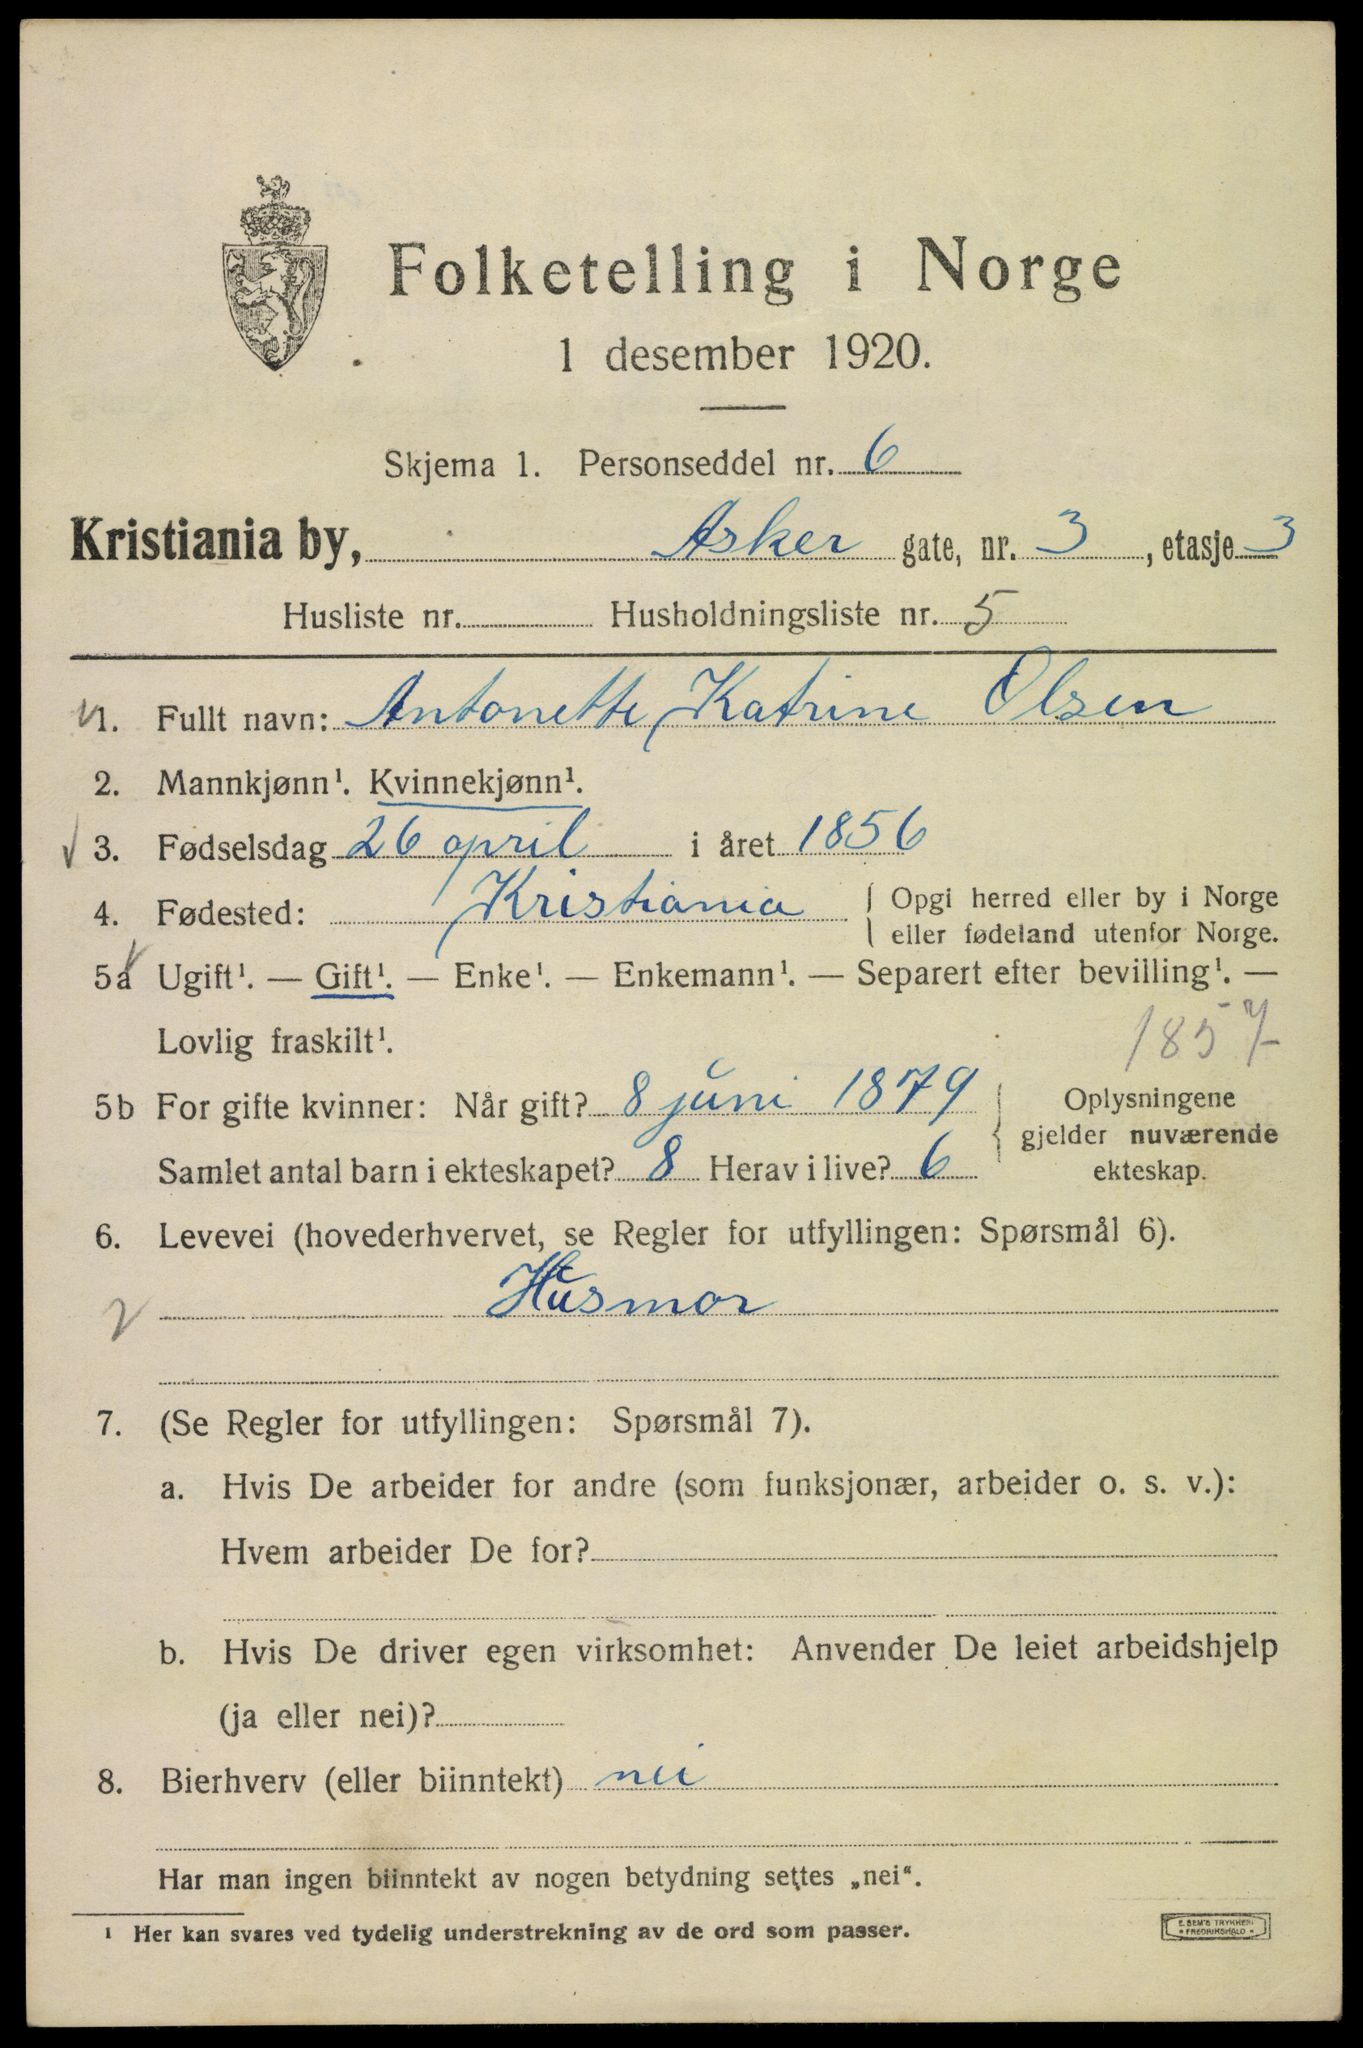 Folketelling i Norge
1 desember 1920.
Skjema 1. Personseddel nr. 6
Kristiania by, Asker gate, nr. 3, etasje 3
Husliste nr. Husholdningsliste nr. 5
1. Fullt navn: Antonette Katrine Olsen
2. Mannkjønn¹. Kvinnekjønn¹.
3. Fødselsdag 26 april i året 1856
4. Fødested: Kristiania { Opgi herred eller by i Norge
eller fødeland utenfor Norge.
5a Ugift¹. — Gift¹. — Enke¹. — Enkemann¹. — Separert efter bevilling¹. —
Lovlig fraskilt¹.
1857
5b For gifte kvinner: Når gift? 8 juni 1879
Samlet antal barn i ekteskapet? 8 Herav i live? 6
{ Oplysningene
gjelder nuværende
ekteskap.
6. Levevei (hovederhvervet, se Regler for utfyllingen: Spørsmål 6).
Husmor
7. (Se Regler for utfyllingen: Spørsmål 7).
a. Hvis De arbeider for andre (som funksjonær, arbeider o. s. v.):
Hvem arbeider De for?
b. Hvis De driver egen virksomhet: Anvender De leiet arbeidshjelp
(ja eller nei)?
8. Bierhverv (eller biinntekt) nei
Har man ingen biinntekt av nogen betydning settes „nei“.
¹ Her kan svares ved tydelig understrekning av de ord som passer.
E. SEM'S TRYKKERI
FREDRIKSHALD